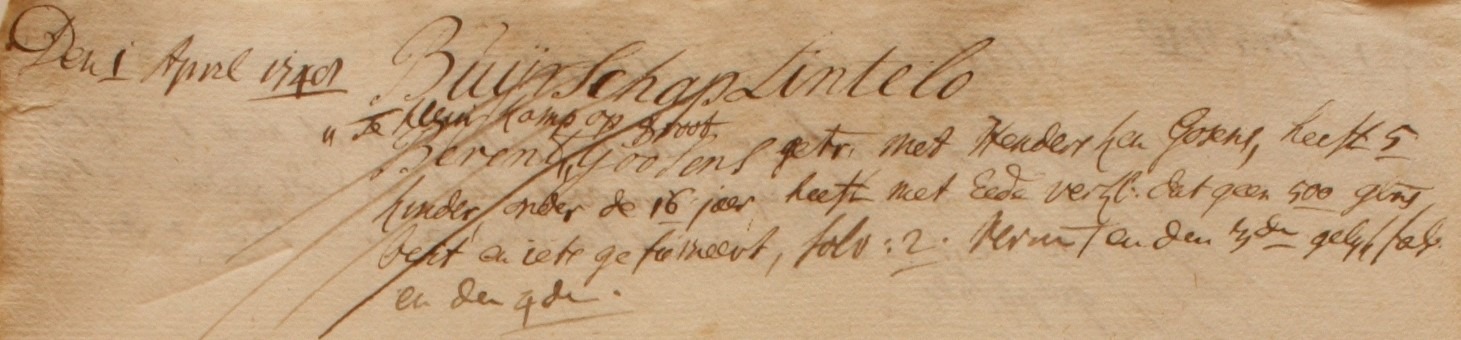 Den 1 April 1748 Buijrschap Lintelo
" Te klein kamp op groot
Berent Goosens getr. met Hendersken Gosens, heeft 5
kinder onder de 16 jaer heeft met Eede verkl. dat geen 500 gins
besit en iets gefurneert, solv : 2. termt en den 3den gelijk sals
en den 4de.